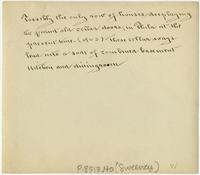 Possibly the only row of houses displaying
the quaint old cellar doors, in Phila. at the
present time. (19   ) These cellar ways
lead into a sort of combined basement
Kitchen and diningroom
P.8513.40 (Sweeney)